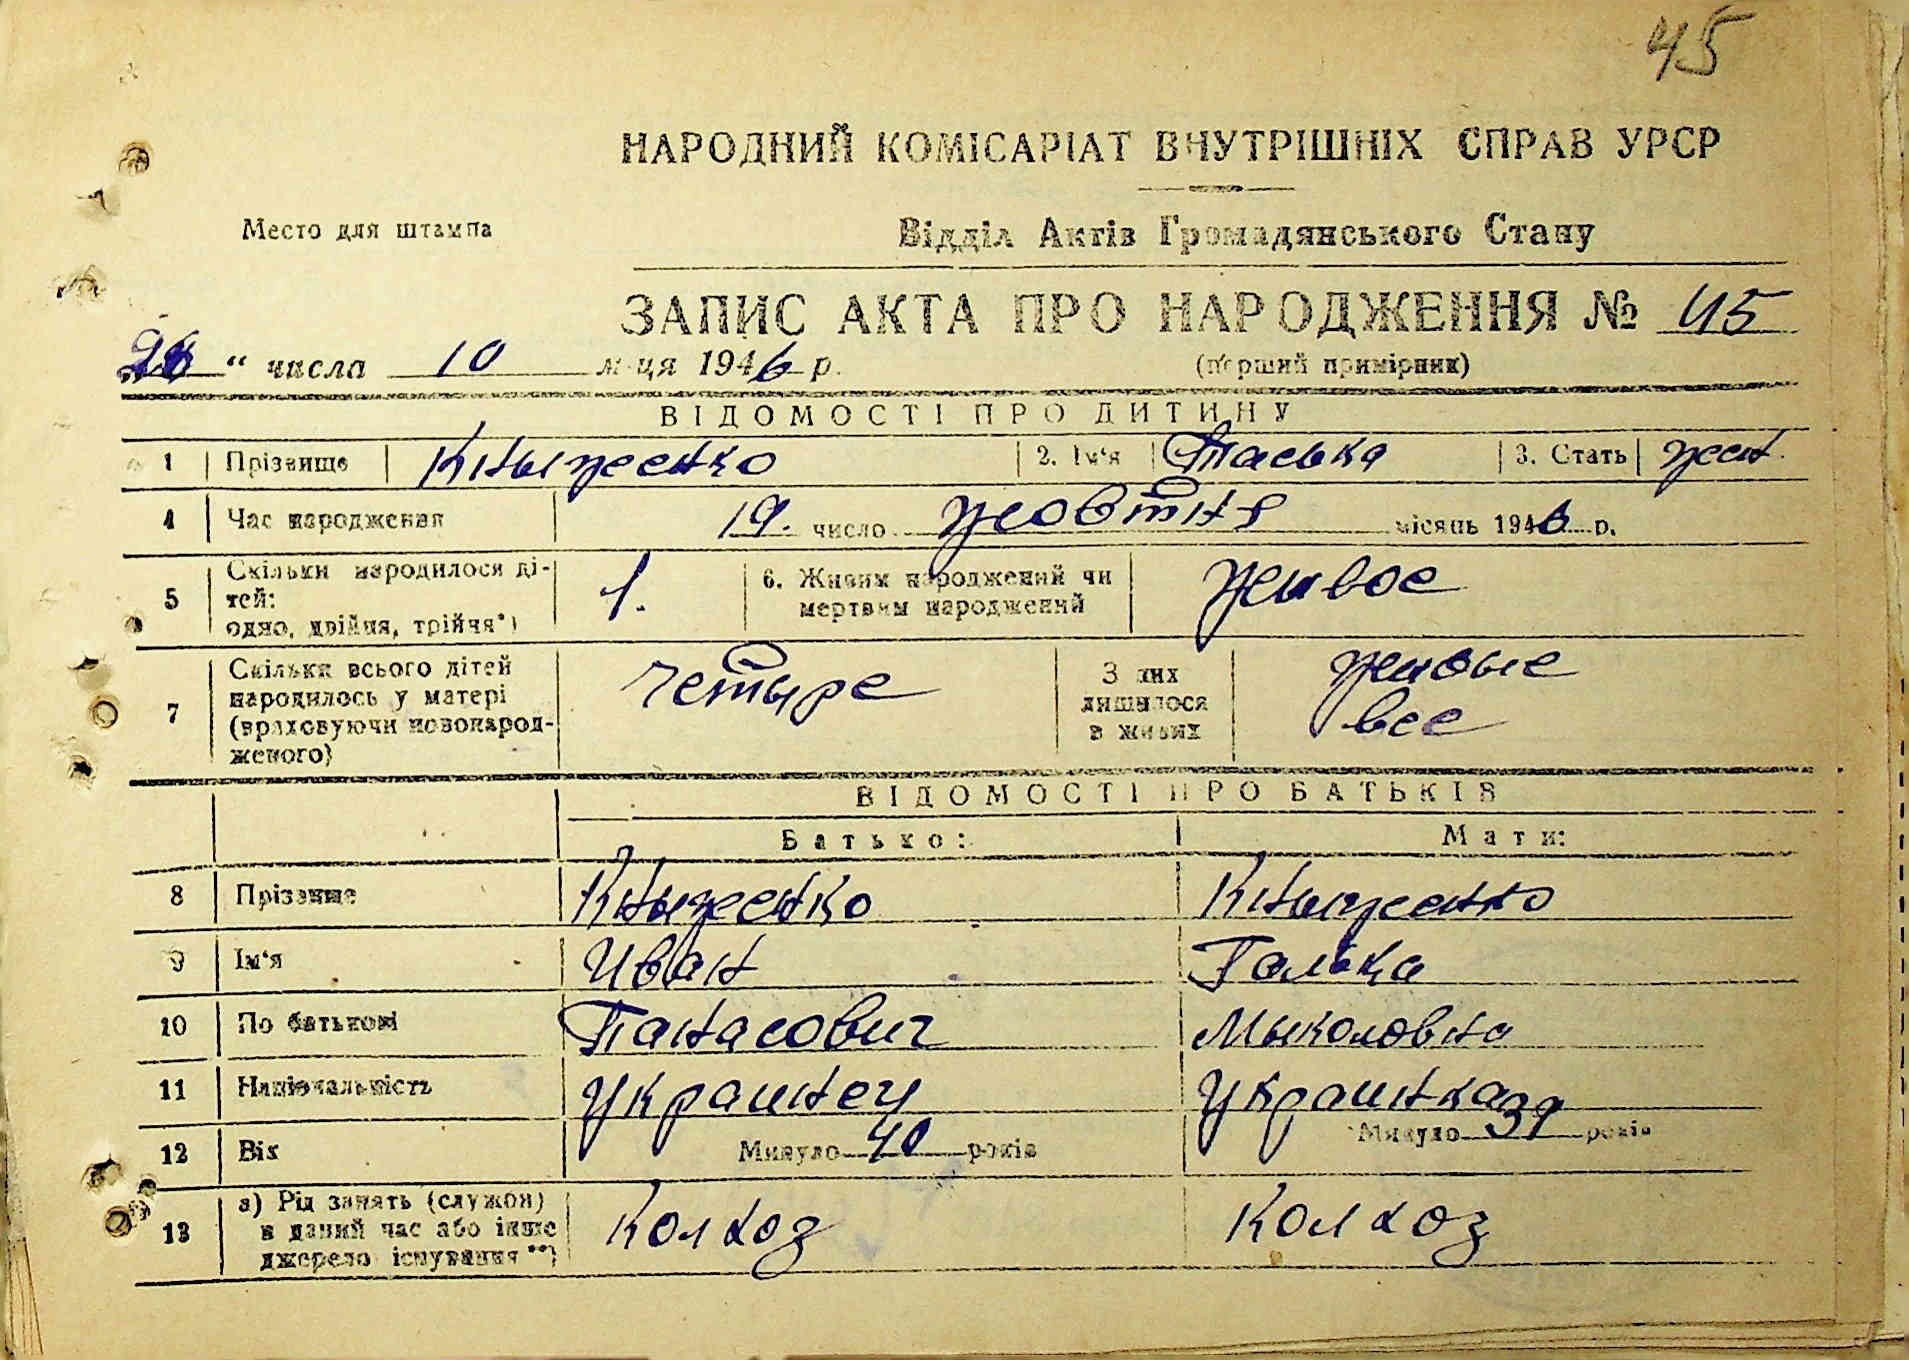 45
НАРОДНИЙ КОМІСАРІАТ ВНУТРІШНІХ СПРАВ УРСР
Место для штампа
Відділ Актів Громадянського Стану
ЗАПИС АКТА ПРО НАРОДЖЕННЯ № 45
" числа 10 м-ця 1946 р.
(перший примірник)
ВІДОМОСТІ ПРО ДИТИНУ
1 Прізвище Кныженко 2. Ім'я Таська 3. Стать жен.
4 Час народження 19. число жовтня місяць 1946 р.
5 Скільки народилося ді-
тей:
одно, двійня, трійня*)
1.
6. Живим народжений чи
мертвим народжений
живое
7 Скільки всього дітей
народилось у матері
(враховуючи новонарод-
женого)
четыре
З них
лишилося
в живих
живые
все
ВІДОМОСТІ ПРО БАТЬКІВ
Батько: Мати:
8 Прізвище Кныженко Кныженко
9 Ім'я Иван Галька
10 По батькові Панасович Мыколовна
11 Національність Украинец Украинка
12 Вік Минуло 40 років Минуло 39 років
13 а) Рід занять (служби)
в даний час або інше
джерело існування**)
Колхоз Колхоз